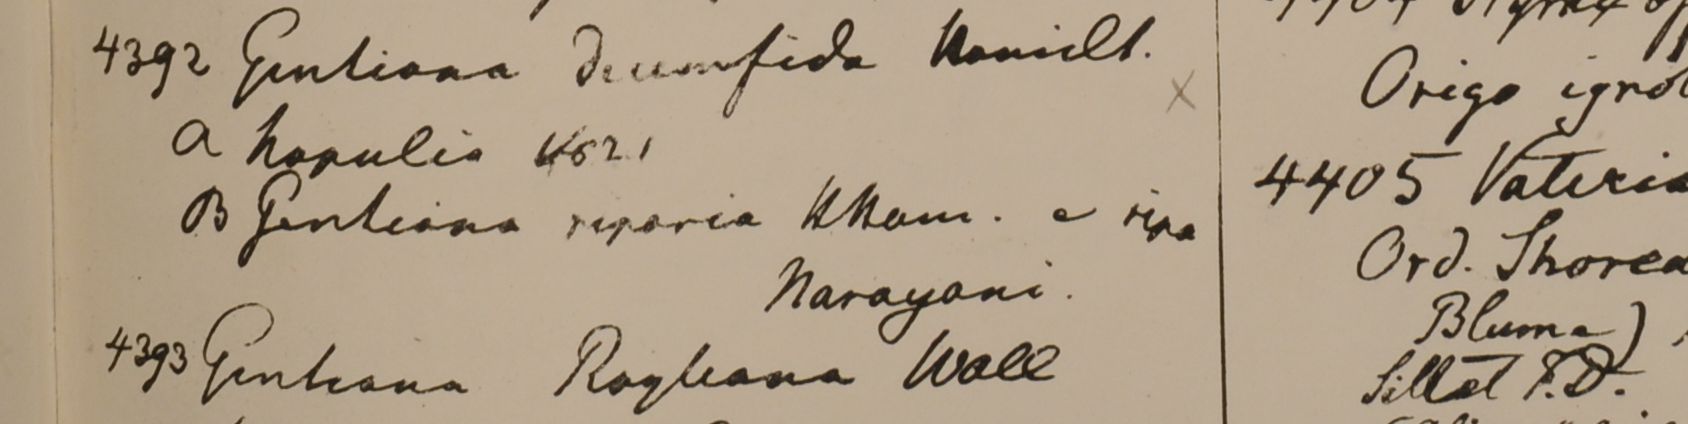 4392 Gentiana decemfida Hamilt.
A Napulia 1821
B Gentiana riparia HHam. e ripa
Narayani.
4393 Gentiana Rogleana Wall
4404 Styrax
Origo ignot
4405 Vateria
Ord. Shorea
Bluma)
Sillet F.D.